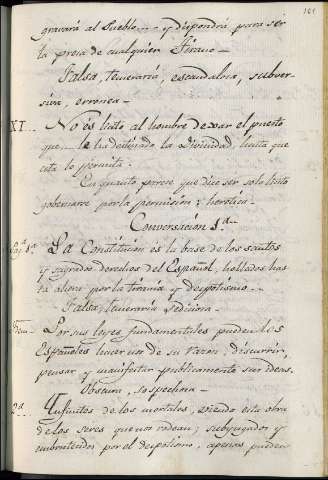 161
gravará al Pueblo... y dispondrá para ser
la presa de cualquier Tirano —
Falsa, temeraria, escandalosa, subver-
siva, erronea —
XI... No és licito al hombre dexar el puesto
que le ha destinado la Divinidad hasta que
esta lo permita.
En quanto parece que dice ser solo licito
gobernarse por la permision; heretica.
Conversacion 1ª
Pag. 1ª La Constitucion es la base de los santos
y sagrados derechos del Español, hollados has
ta ahora por la tirania y despotismo...
Falsa, temeraria, Sediciosa —
Por sus leyes fundamentales pueden los
Españoles hacer uso de su razon, discurrir,
pensar y manifestar publicamente sus ideas.
Obscura, sospechosa —
2ª Infinitos de los mortales, siendo esta obra
de los seres que nos rodean, subyugados y
embrutecidos por el despotismo, apenas pueden